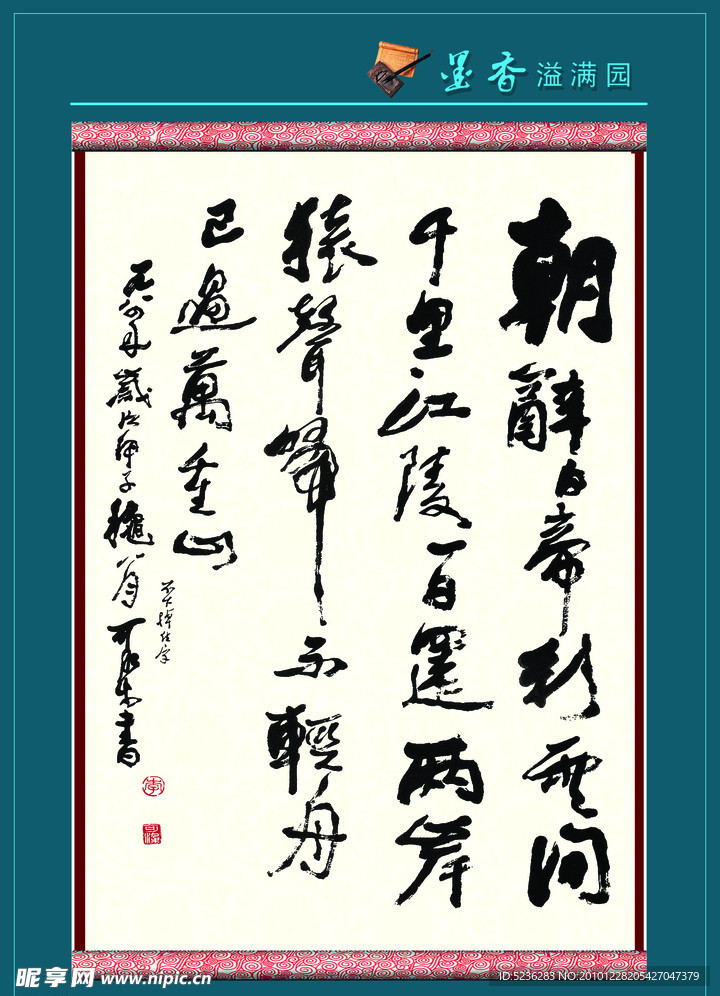 墨香溢满园
朝辭白帝彩雲間
千里江陵一日還兩岸
猿聲啼不輕舟
已過萬重山
不下掉住字
一九八四年歲次甲子穐八月可染書
李
可染
昵享网 www.nipic.cn
ID:5236283 NO:20101228205427047379